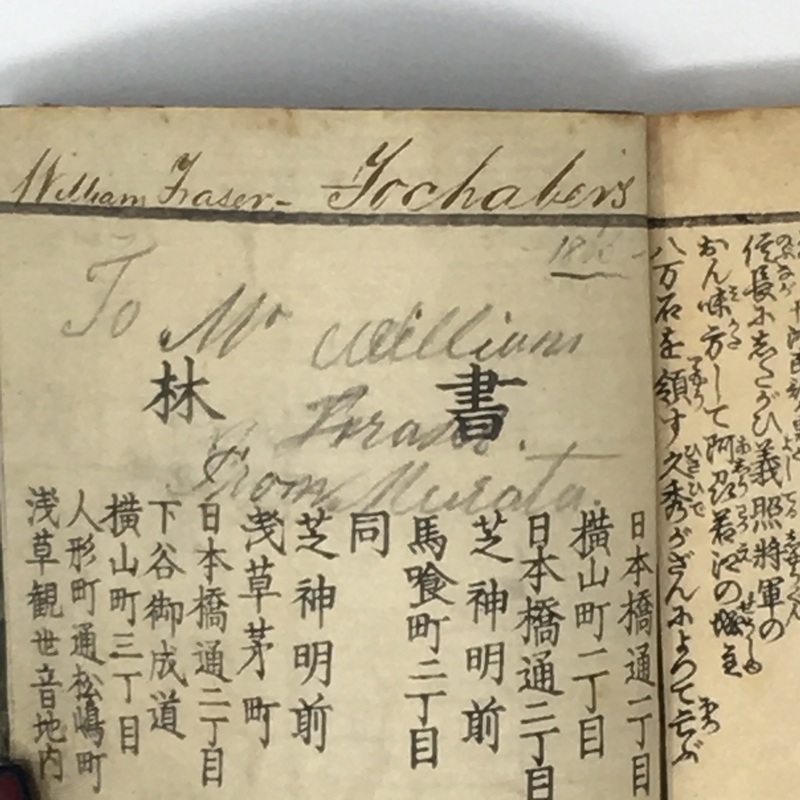 William Fraser - Fochabers
To Mr William
Fraser.
From Murata.
書林
日本橋通一丁目
横山町二丁目
日本橋通二丁目
芝神明前
馬喰町二丁目
同
芝神明前
浅草茅町
日本橋通二丁目
下谷御成道
横山町三丁目
人形町通松嶋町
浅草観世音地内
義照将軍の
おん味方して阿
八万石を領す久秀がざんによつて亡ぶ